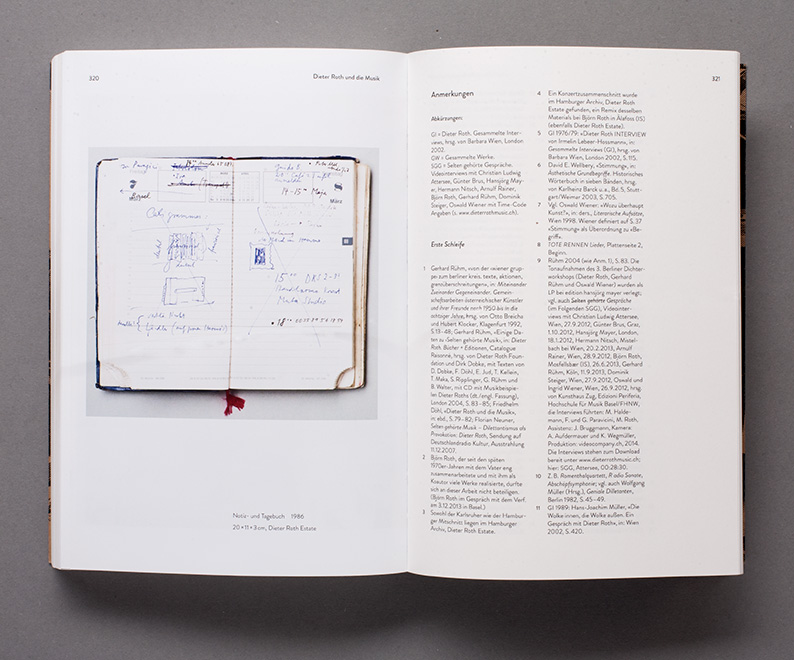 320
Dieter Roth und die Musik
7
März
14-15
Notiz- und Tagebuch 1986
20 × 11 × 3 cm, Dieter Roth Estate
321
Anmerkungen
Abkürzungen:
GI = Dieter Roth. Gesammelte Inter-
views, hrsg. von Barbara Wien, London
2002.
GW = Gesammelte Werke.
SGG = Selten gehörte Gespräche.
Videointerviews mit Christian Ludwig
Attersee, Günter Brus, Hansjörg May-
er, Hermann Nitsch, Arnulf Rainer,
Björn Roth, Gerhard Rühm, Dominik
Steiger, Oswald Wiener mit Time-Code
Angaben (s. www.dieterrothmusic.ch).
Erste Schleife
1 Gerhard Rühm, «von der wiener grup-
pe zum berliner kreis. texte, aktionen,
grenzüberschreitungen», in: Miteinander
Zueinander Gegeneinander. Gemein-
schaftsarbeiten österreichischer Künstler
und ihrer Freunde nach 1950 bis in die
achtziger Jahre, hrsg. von Otto Breicha
und Hubert Klocker, Klagenfurt 1992,
S. 13–48; Gerhard Rühm, «Einige Da-
ten zu ‹Selten gehörte Musik›, in: Dieter
Roth. Bücher + Editionen, Catalogue
Raisonné, hrsg. von Dieter Roth Foun-
dation und Dirk Dobke, mit Texten von
D. Dobke, F. Döhl, E. Jud, T. Kellein,
T. Maka, S. Ripplinger, G. Rühm und
B. Walter, mit CD mit Musikbeispie-
len Dieter Roths (dt./engl. Fassung),
London 2004, S. 83–85; Friedhelm
Döhl, «Dieter Roth und die Musik»,
in: ebd., S. 79–82; Florian Neuner,
Selten gehörte Musik – Dilettantismus als
Provokation: Dieter Roth, Sendung auf
Deutschlandradio Kultur, Ausstrahlung
11.12.2007.
2 Björn Roth, der seit den späten
1970er-Jahren mit dem Vater eng
zusammenarbeitete und mit ihm als
Koautor viele Werke realisierte, durfte
sich an dieser Arbeit nicht beteiligen.
(Björn Roth im Gespräch mit dem Verf.
am 3.12.2013 in Basel.)
3 Sowohl der Karlsruher wie der Hambur-
ger Mitschnitt liegen im Hamburger
Archiv, Dieter Roth Estate.
4 Ein Konzertzusammenschnitt wurde
im Hamburger Archiv, Dieter Roth
Estate gefunden, ein Remix desselben
Materials bei Björn Roth in Álafoss (IS)
(ebenfalls Dieter Roth Estate).
5 GI 1976/79: «Dieter Roth INTERVIEW
von Irmelin Lebeer-Hossmann», in:
Gesammelte Interviews (GI), hrsg. von
Barbara Wien, London 2002, S. 115.
6 David E. Wellbery, «Stimmung», in:
Ästhetische Grundbegriffe. Historisches
Wörterbuch in sieben Bänden, hrsg.
von Karlheinz Barck u.a., Bd. 5, Stutt-
gart/Weimar 2003, S. 705.
7 Vgl. Oswald Wiener: «Wozu überhaupt
Kunst?», in: ders., Literarische Aufsätze,
Wien 1998. Wiener definiert auf S. 37
«Stimmung» als Überordnung zu «Be-
griff».
8 TOTE RENNEN Lieder, Plattenseite 2,
Beginn.
9 Rühm 2004 (wie Anm. 1), S. 83. Die
Tonaufnahmen des 3. Berliner Dichter-
workshops (Dieter Roth, Gerhard
Rühm und Oswald Wiener) wurden als
LP bei edition hansjörg mayer verlegt;
vgl. auch Selten gehörte Gespräche
(im Folgenden SGG), Videointer-
views mit Christian Ludwig Attersee,
Wien, 27.9.2012, Günter Brus, Graz,
1.10.2012, Hansjörg Mayer, London,
18.1.2012, Hermann Nitsch, Mistel-
bach bei Wien, 20.2.2013, Arnulf
Rainer, Wien, 28.9.2012, Björn Roth,
Mosfellsbær (IS), 26.6.2013, Gerhard
Rühm, Köln, 11.9.2013, Dominik
Steiger, Wien, 27.9.2012, Oswald und
Ingrid Wiener, Wien, 26.9.2012; hrsg.
von Kunsthaus Zug, Edizioni Periferia,
Hochschule für Musik Basel/FHNW,
die Interviews führten: M. Halde-
mann, F. und G. Paravicini, M. Roth,
Assistenz: J. Bruggmann, Kamera:
A. Aufdermauer und K. Wegmüller,
Produktion: videocompany.ch, 2014.
Die Interviews stehen zum Download
bereit unter www.dieterrothmusic.ch;
hier: SGG, Attersee, 00:28:30.
10 Z.B. Romenthalquartett, Radio Sonate,
Abschöpfsymphonie; vgl. auch Wolfgang
Müller (Hrsg.), Geniale Dilletanten,
Berlin 1982, S. 45–49.
11 GI 1989: Hans-Joachim Müller, «Die
Wolke innen, die Wolke außen. Ein
Gespräch mit Dieter Roth», in: Wien
2002, S. 420.